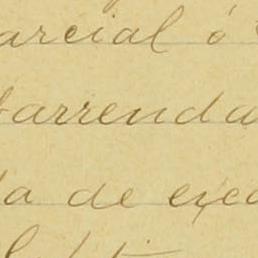 arcial ó
arrenda
da de exec